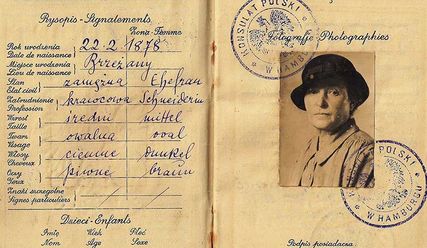 Rysopis - Signalements
Żona - Femme
Rok urodzenia 22.2.1878
Date de naissance
Miejsce urodzenia Brzeżany
Lieu de naissance
Stan zamężna Ehefrau
État civil
Zatrudnienie krawcowa Schneiderin
Profession
Wzrost średni mittel
Taille
Twarz owalna oval
Visage
Włosy ciemne dunkel
Cheveux
Oczy piwne braun
Yeux
Znaki szczególne
Signes particuliers
Dzieci - Enfants
Imię Wiek Płeć
Nom Age Sexe
KONSULAT POLSKI
W HAMBURGU
Fotografje - Photographies
KONSULAT POLSKI
W HAMBURGU
Podpis posiadacza